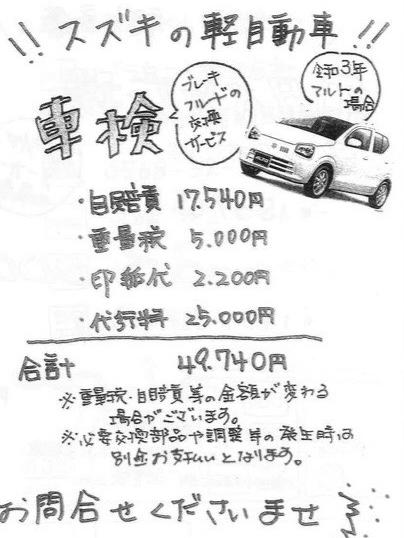 !! スズキの軽自動車 !!
車検
ブレーキ
フルードの
交換
サービス
令和3年
アルトの
場合
・自賠責 17.540円
・重量税 5.000円
・印紙代 2.200円
・代行料 25.000円
合計 49.740円
※重量税・自賠責等の金額が変わる
場合がございます。
※必要交換部品や調整等の発生時は
別途お支払いとなります。
お問合せくださいませ